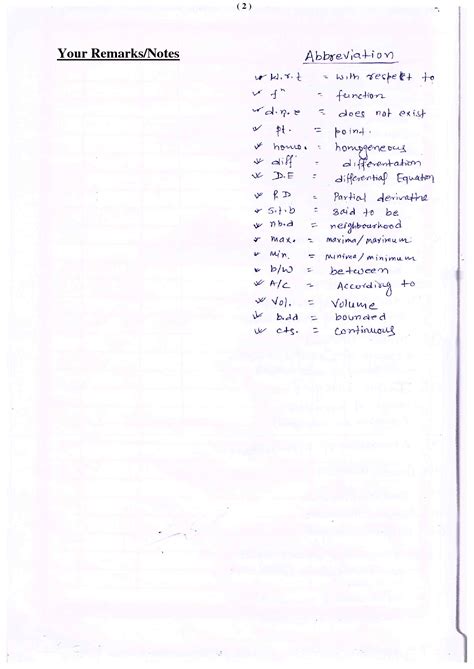 ( 2 )
Your Remarks/Notes
Abbreviation
w.r.t = with respect to
fⁿ = function
d.n.e = does not exist
pt. = point.
homo. = homogeneous
diff = differentation
D.E = differential Equation
P.D = Partial derivative
s.t.b = said to be
nb.d = neighbourhood
max. = maxima/maximum
Min. = minima/minimum
b/w = between
A/C = According to
Vol. = Volume
b.dd = bounded
cts. = continuous